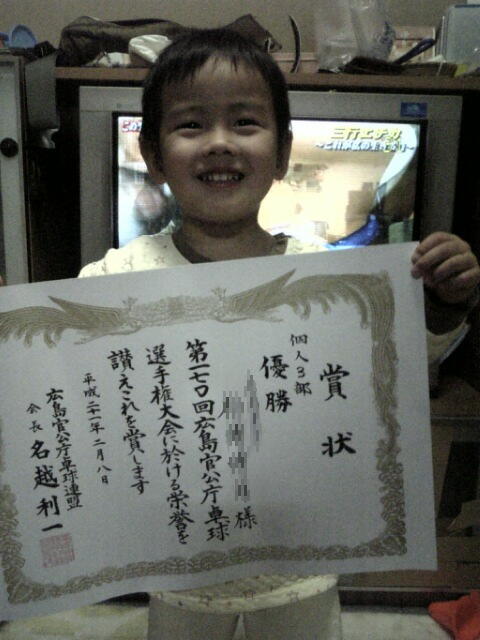 三行エチカ
賞状
個人3部
優勝
様
第一七〇回広島官公庁卓球
選手権大会に於ける栄誉を
讃えこれを賞します
平成二十一年二月八日
広島官公庁卓球連盟
会長 名越利一